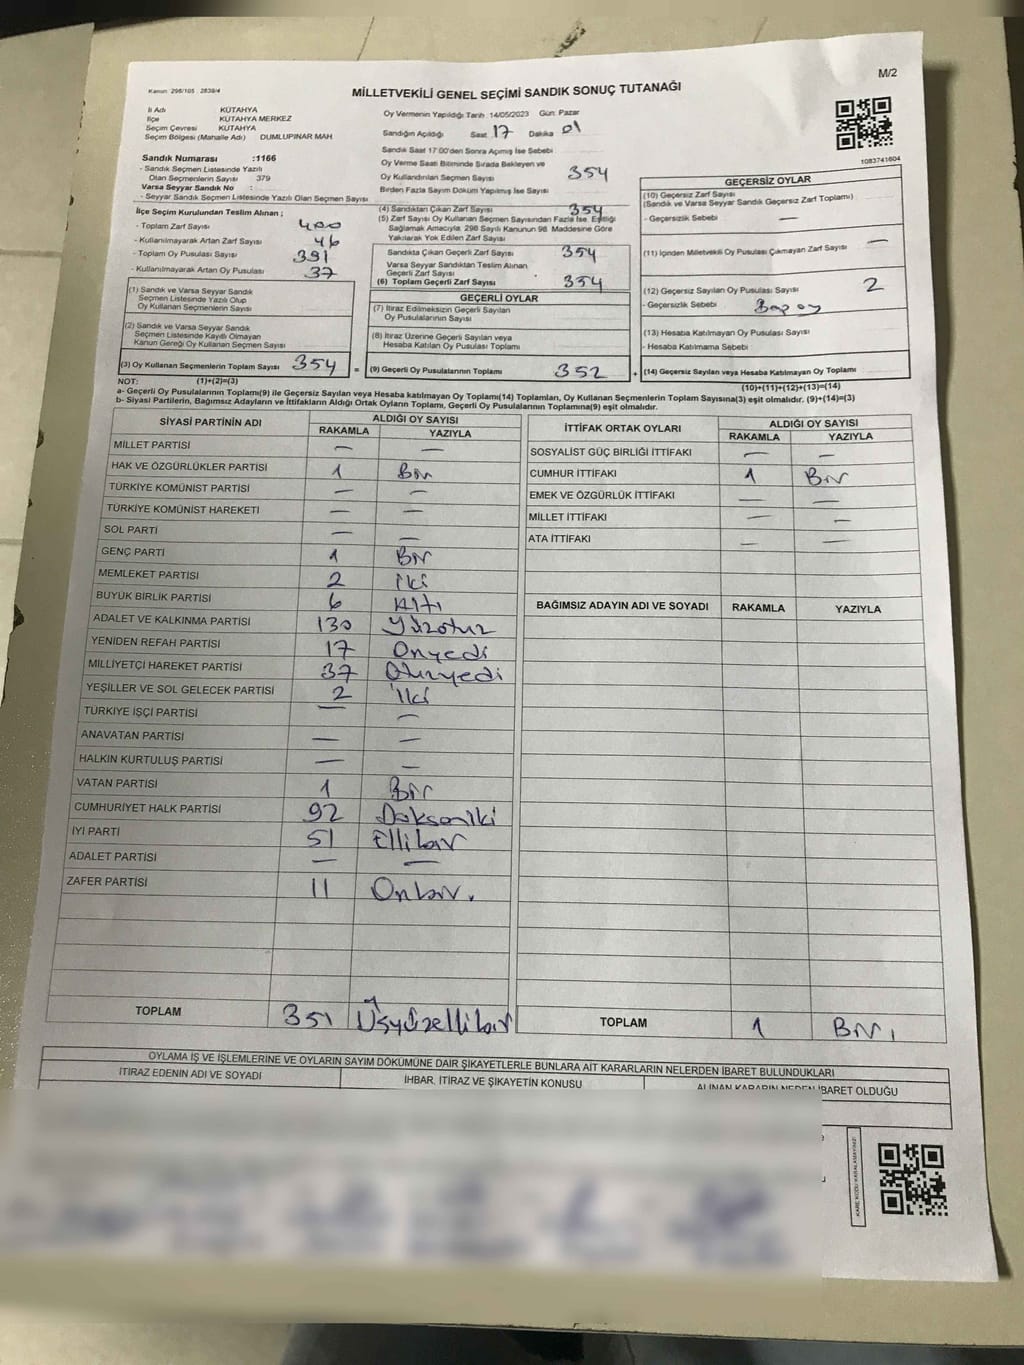 M/2
Kanun: 298/105 , 2839/4
MİLLETVEKİLİ GENEL SEÇİMİ SANDIK SONUÇ TUTANAĞI
İl Adı KÜTAHYA
İlçe KÜTAHYA MERKEZ
Seçim Çevresi KÜTAHYA
Seçim Bölgesi (Mahalle Adı) DUMLUPINAR MAH.
Sandık Numarası :1166
- Sandık Seçmen Listesinde Yazılı
Olan Seçmenlerin Sayısı 379
Varsa Seyyar Sandık No :
- Seyyar Sandık Seçmen Listesinde Yazılı Olan Seçmen Sayısı
İlçe Seçim Kurulundan Teslim Alınan ;
- Toplam Zarf Sayısı 400
- Kullanılmayarak Artan Zarf Sayısı 46
- Toplam Oy Pusulası Sayısı 391
- Kullanılmayarak Artan Oy Pusulası 37
(1) Sandık ve Varsa Seyyar Sandık
Seçmen Listesinde Yazılı Olup
Oy Kullanan Seçmenlerin Sayısı
(2) Sandık ve Varsa Seyyar Sandık
Seçmen Listesinde Kayıtlı Olmayan
Kanun Gereği Oy Kullanan Seçmen Sayısı
(3) Oy Kullanan Seçmenlerin Toplam Sayısı 354 =
Oy Vermenin Yapıldığı Tarih : 14/05/2023 Gün: Pazar
Sandığın Açıldığı Saat 17 Dakika 01
Sandık Saat 17:00'den Sonra Açılmış İse Sebebi :
Oy Verme Saati Bitiminde Sırada Bekleyen ve
Oy Kullandırılan Seçmen Sayısı 354
Birden Fazla Sayım Döküm Yapılmış İse Sayısı
(4) Sandıktan Çıkan Zarf Sayısı 354
(5) Zarf Sayısı Oy Kullanan Seçmen Sayısından Fazla İse, Eşitliği
Sağlamak Amacıyla, 298 Sayılı Kanunun 98. Maddesine Göre
Yakılarak Yok Edilen Zarf Sayısı
Sandıkta Çıkan Geçerli Zarf Sayısı 354
Varsa Seyyar Sandıktan Teslim Alınan
Geçerli Zarf Sayısı
(6) Toplam Geçerli Zarf Sayısı 354
GEÇERLİ OYLAR
(7) İtiraz Edilmeksizin Geçerli Sayılan
Oy Pusulalarının Sayısı
(8) İtiraz Üzerine Geçerli Sayılan veya
Hesaba Katılan Oy Pusulası Toplamı
(9) Geçerli Oy Pusulalarının Toplamı 352 +
1083741604
GEÇERSİZ OYLAR
(10) Geçersiz Zarf Sayısı
(Sandık ve Varsa Seyyar Sandık Geçersiz Zarf Toplamı)
- Geçersizlik Sebebi —
(11) İçinden Milletvekili Oy Pusulası Çıkmayan Zarf Sayısı —
(12) Geçersiz Sayılan Oy Pusulası Sayısı 2
- Geçersizlik Sebebi
(13) Hesaba Katılmayan Oy Pusulası Sayısı
- Hesaba Katılmama Sebebi
(14) Geçersiz Sayılan veya Hesaba Katılmayan Oy Toplamı
NOT: (1)+(2)=(3) (10)+(11)+(12)+(13)=(14)
a- Geçerli Oy Pusulalarının Toplamı(9) ile Geçersiz Sayılan veya Hesaba katılmayan Oy Toplamı(14) Toplamları, Oy Kullanan Seçmenlerin Toplam Sayısına(3) eşit olmalıdır. (9)+(14)=(3)
b- Siyasi Partilerin, Bağımsız Adayların ve İttifakların Aldığı Ortak Oyların Toplamı, Geçerli Oy Pusulalarının Toplamına(9) eşit olmalıdır.
SİYASİ PARTİNİN ADI ALDIĞI OY SAYISI
RAKAMLA YAZIYLA
MİLLET PARTİSİ — —
HAK VE ÖZGÜRLÜKLER PARTİSİ 1 Bir
TÜRKİYE KOMÜNİST PARTİSİ — —
TÜRKİYE KOMÜNİST HAREKETİ — —
SOL PARTİ — —
GENÇ PARTİ 1 Bir
MEMLEKET PARTİSİ 2 İki
BÜYÜK BİRLİK PARTİSİ 6 Altı
ADALET VE KALKINMA PARTİSİ 130 Yüzotuz
YENİDEN REFAH PARTİSİ 17 Onyedi
MİLLİYETÇİ HAREKET PARTİSİ 37 Otuzyedi
YEŞİLLER VE SOL GELECEK PARTİSİ 2 İki
TÜRKİYE İŞÇİ PARTİSİ — —
ANAVATAN PARTİSİ — —
HALKIN KURTULUŞ PARTİSİ — —
VATAN PARTİSİ 1 Bir
CUMHURİYET HALK PARTİSİ 92 Doksaniki
İYİ PARTİ 51 Ellibir
ADALET PARTİSİ — —
ZAFER PARTİSİ 11 Onbir.
TOPLAM 351 Üçyüzellibir
İTTİFAK ORTAK OYLARI ALDIĞI OY SAYISI
RAKAMLA YAZIYLA
SOSYALİST GÜÇ BİRLİĞİ İTTİFAKI — —
CUMHUR İTTİFAKI 1 Bir
EMEK VE ÖZGÜRLÜK İTTİFAKI — —
MİLLET İTTİFAKI — —
ATA İTTİFAKI — —
BAĞIMSIZ ADAYIN ADI VE SOYADI RAKAMLA YAZIYLA
TOPLAM 1 Bir.
OYLAMA İŞ VE İŞLEMLERİNE VE OYLARIN SAYIM DÖKÜMÜNE DAİR ŞİKAYETLERLE BUNLARA AİT KARARLARIN NELERDEN İBARET BULUNDUKLARI
İTİRAZ EDENİN ADI VE SOYADI İHBAR, İTİRAZ VE ŞİKAYETİN KONUSU ALINAN KARARIN NEDEN İBARET OLDUĞU